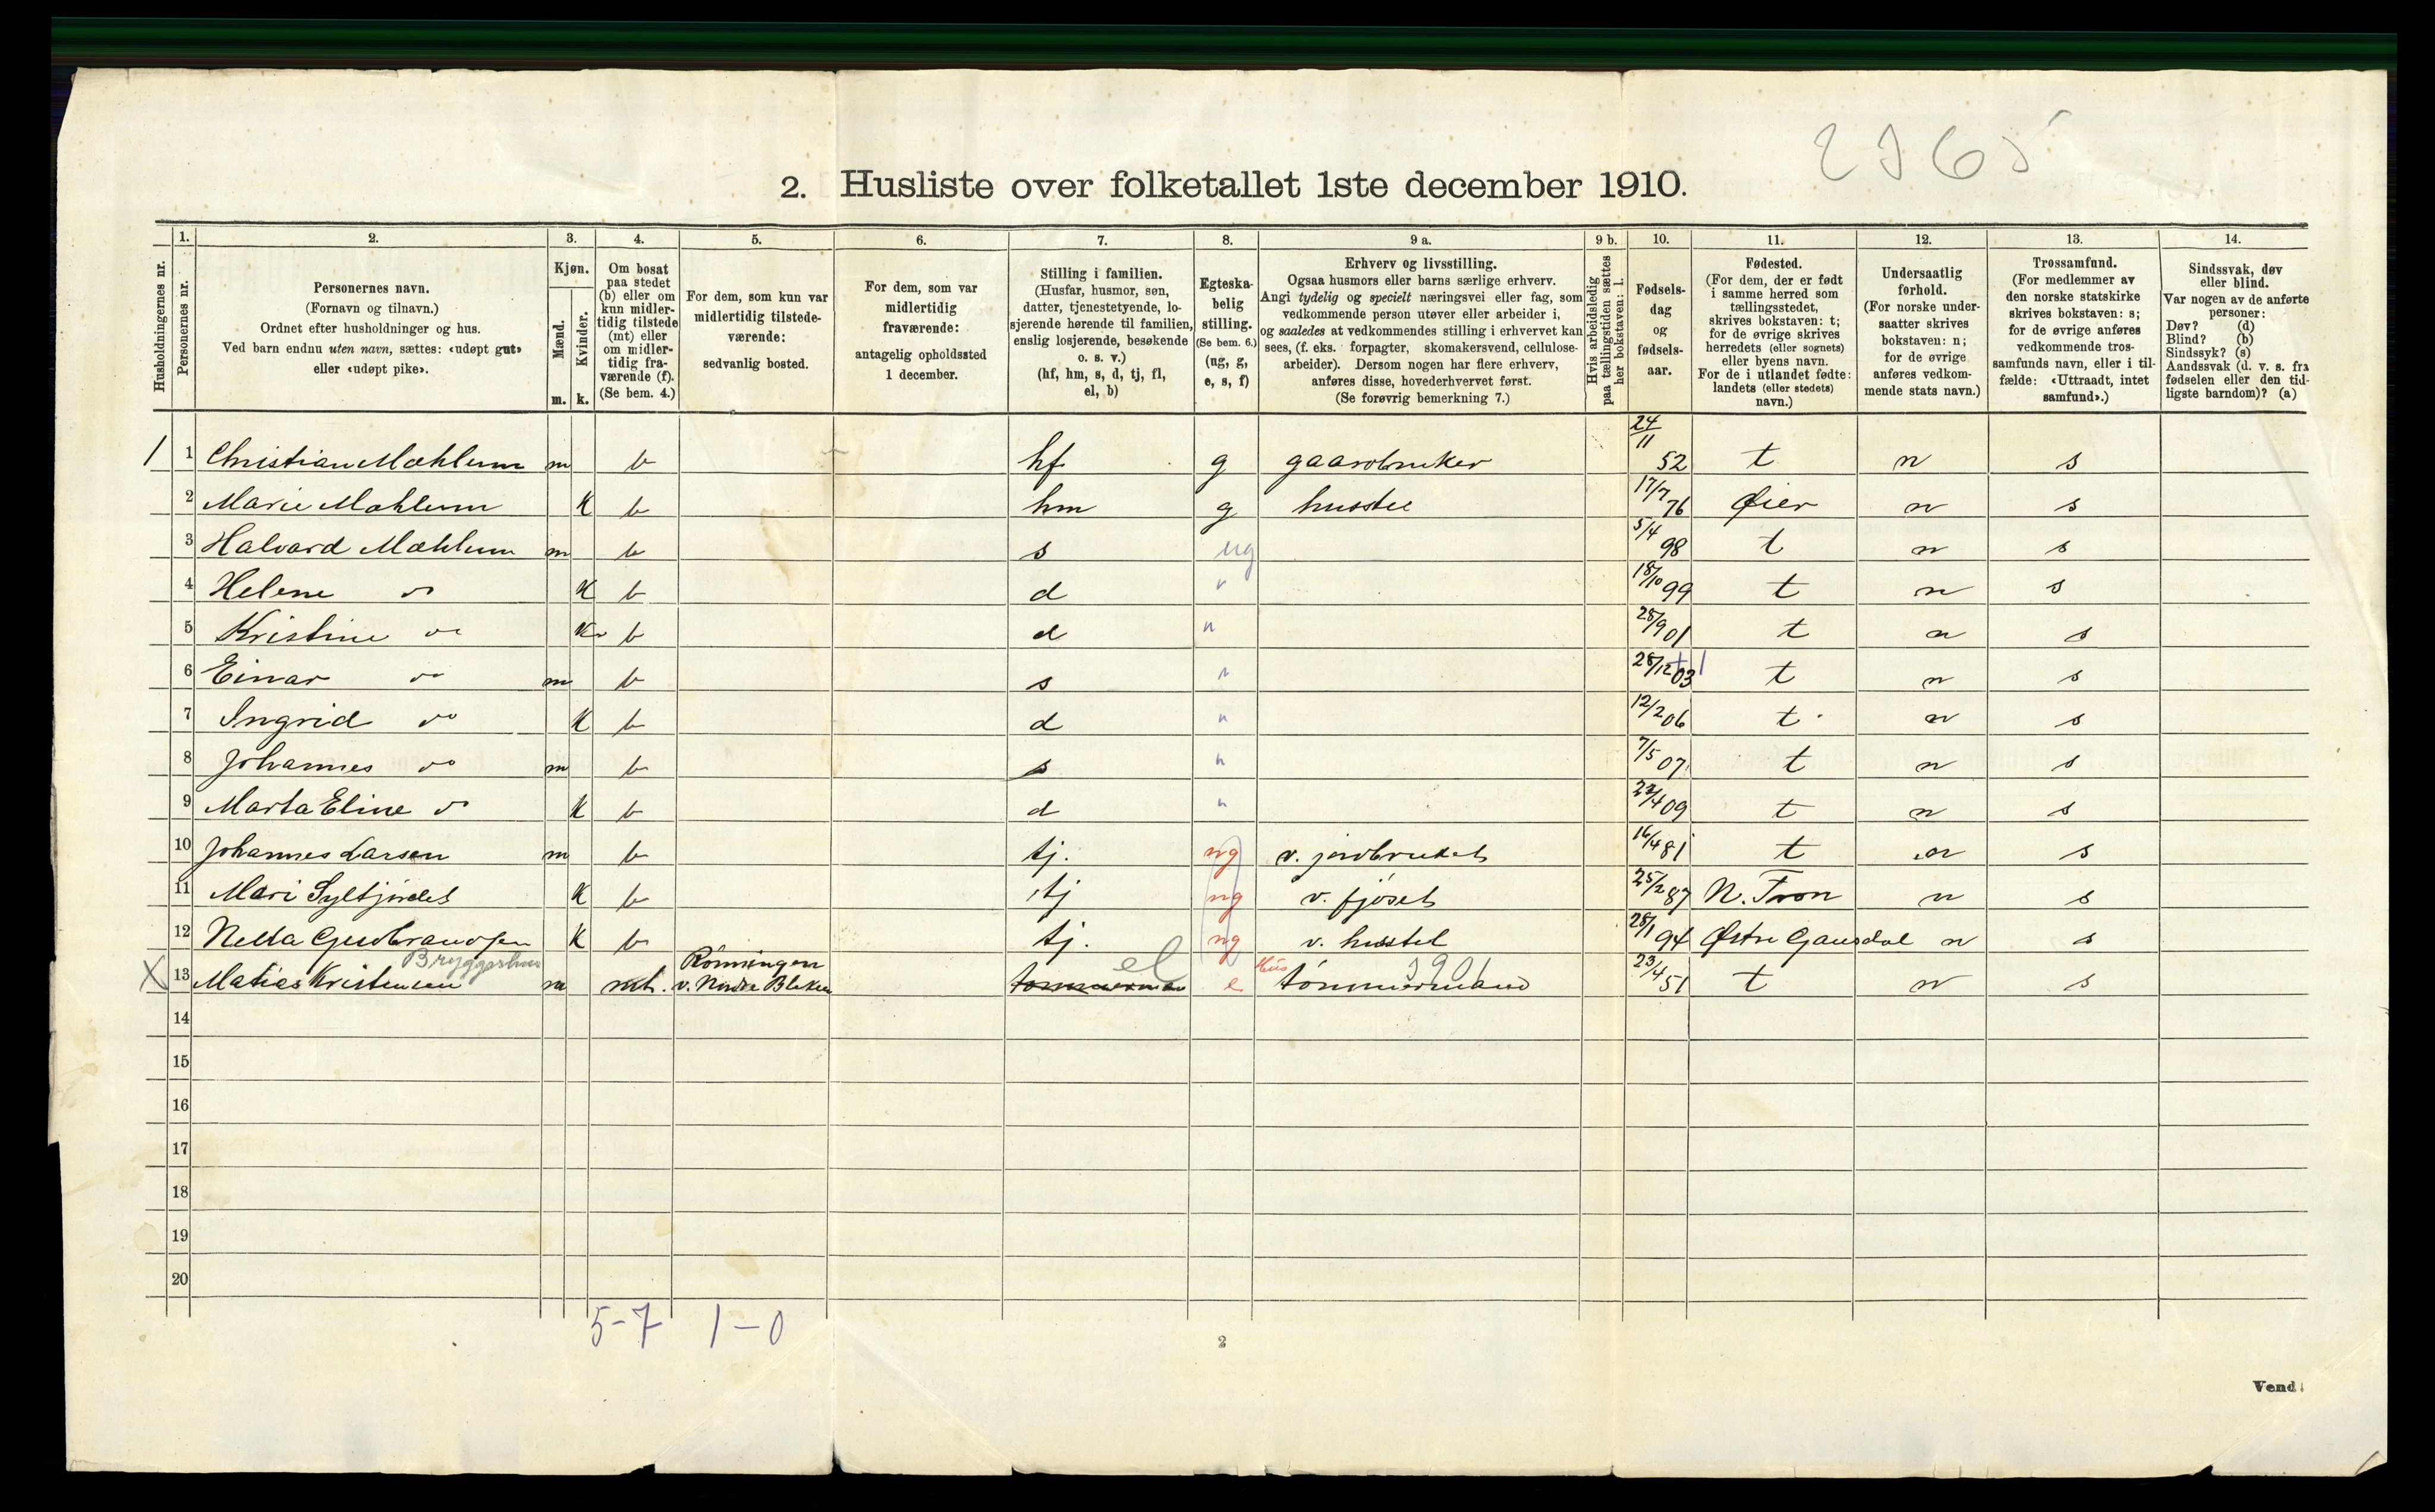 2365
2. Husliste over folketallet 1ste december 1910.
Husholdningernes nr.
1. Personernes nr.
2. Personernes navn.
(Fornavn og tilnavn.)
Ordnet efter husholdninger og hus.
Ved barn endnu uten navn, sættes: «udøpt gut»
eller «udøpt pike».
3. Kjøn.
Mænd. m.
Kvinder. k.
4. Om bosat
paa stedet
(b) eller om
kun midler-
tidig tilstede
(mt) eller
om midler-
tidig fra-
værende (f).
(Se bem. 4.)
5. For dem, som kun var
midlertidig tilstede-
værende:
sedvanlig bosted.
6. For dem, som var
midlertidig
fraværende:
antagelig opholdssted
1 december.
7. Stilling i familien.
(Husfar, husmor, søn,
datter, tjenestetyende, lo-
sjerende hørende til familien,
enslig losjerende, besøkende
o. s. v.)
(hf, hm, s, d, tj, fl,
el, b)
8. Egteska-
belig
stilling.
(Se bem. 6.)
(ug, g,
e, s, f)
9 a. Erhverv og livsstilling.
Ogsaa husmors eller barns særlige erhverv.
Angi tydelig og specielt næringsvei eller fag, som
vedkommende person utøver eller arbeider i,
og saaledes at vedkommendes stilling i erhvervet kan
sees, (f. eks. forpagter, skomakersvend, cellulose-
arbeider). Dersom nogen har flere erhverv,
anføres disse, hovederhvervet først.
(Se forøvrig bemerkning 7.)
9 b. Hvis arbeidsledig
paa tællingstiden sættes
her bokstaven: l.
10. Fødsels-
dag
og
fødsels-
aar.
11. Fødested.
(For dem, der er født
i samme herred som
tællingsstedet,
skrives bokstaven: t;
for de øvrige skrives
herredets (eller sognets)
eller byens navn.
For de i utlandet fødte:
landets (eller stedets)
navn.)
12. Undersaatlig
forhold.
(For norske under-
saatter skrives
bokstaven: n;
for de øvrige
anføres vedkom-
mende stats navn.)
13. Trossamfund.
(For medlemmer av
den norske statskirke
skrives bokstaven: s;
for de øvrige anføres
vedkommende tros-
samfunds navn, eller i til-
fælde: «Uttraadt, intet
samfund».)
14. Sindssvak, døv
eller blind.
Var nogen av de anførte
personer:
Døv? (d)
Blind? (b)
Sindssyk? (s)
Aandssvak (d. v. s. fra
fødselen eller den tid-
ligste barndom)? (a)
1 1 Christian Mæhlum m b hf g gaardbruker 24/11 52 t n s
2 Marie Mæhlum K b hm g husstel 17/7 76 Øier n s
3 Halvard Mæhlum m b s ug 5/4 98 t n s
4 Helene do K b d " 18/10 99 t n s
5 Kristine do K b d " 28/9 01 t n s
6 Einar do m b s " 28/12 03 t n s
7 Ingrid do K b d " 12/2 06 t n s
8 Johannes do m b s " 7/5 07 t n s
9 Marta Eline do K b d " 22/4 09 t n s
10 Johannes Larsen m b tj. ug v. jordbruket 16/4 81 t n s
11 Mari Syltjordet K b tj ug v. fjøset 25/2 87 N. Fron n s
12 Gudbrandsen K b tj. ug v. husstel 28/1 94 Østre Gausdal n s
X 13 Matias Kristensen m mt. Rønningen
v. Nordre Bleken tømmerman el e Hus tømmermand 3901 23/4 51 t n s
14
15
16
17
18
19
20
5-7 1-0
2
Vend!